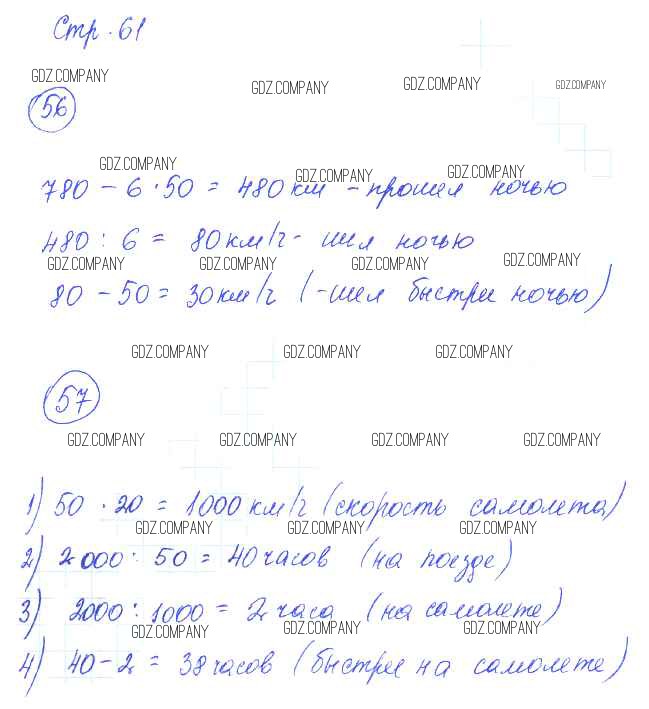 Стр. 61
GDZ.COMPANY GDZ.COMPANY GDZ.COMPANY GDZ.COMPANY
56
GDZ.COMPANY GDZ.COMPANY GDZ.COMPANY
780 - 6 · 50 = 480 км - прошел ночью
480 : 6 = 80 км/ч - шел ночью
GDZ.COMPANY GDZ.COMPANY GDZ.COMPANY GDZ.COMPANY
80 - 50 = 30 км/ч (-шел быстрее ночью)
GDZ.COMPANY GDZ.COMPANY GDZ.COMPANY
57
GDZ.COMPANY GDZ.COMPANY GDZ.COMPANY GDZ.COMPANY
1) 50 · 20 = 1000 км/ч (скорость самолета)
GDZ.COMPANY GDZ.COMPANY GDZ.COMPANY
2) 2000 : 50 = 40 часов (на поезде)
3) 2000 : 1000 = 2 часа (на самолете)
GDZ.COMPANY GDZ.COMPANY GDZ.COMPANY
4) 40 - 2 = 38 часов (быстрее на самолете)